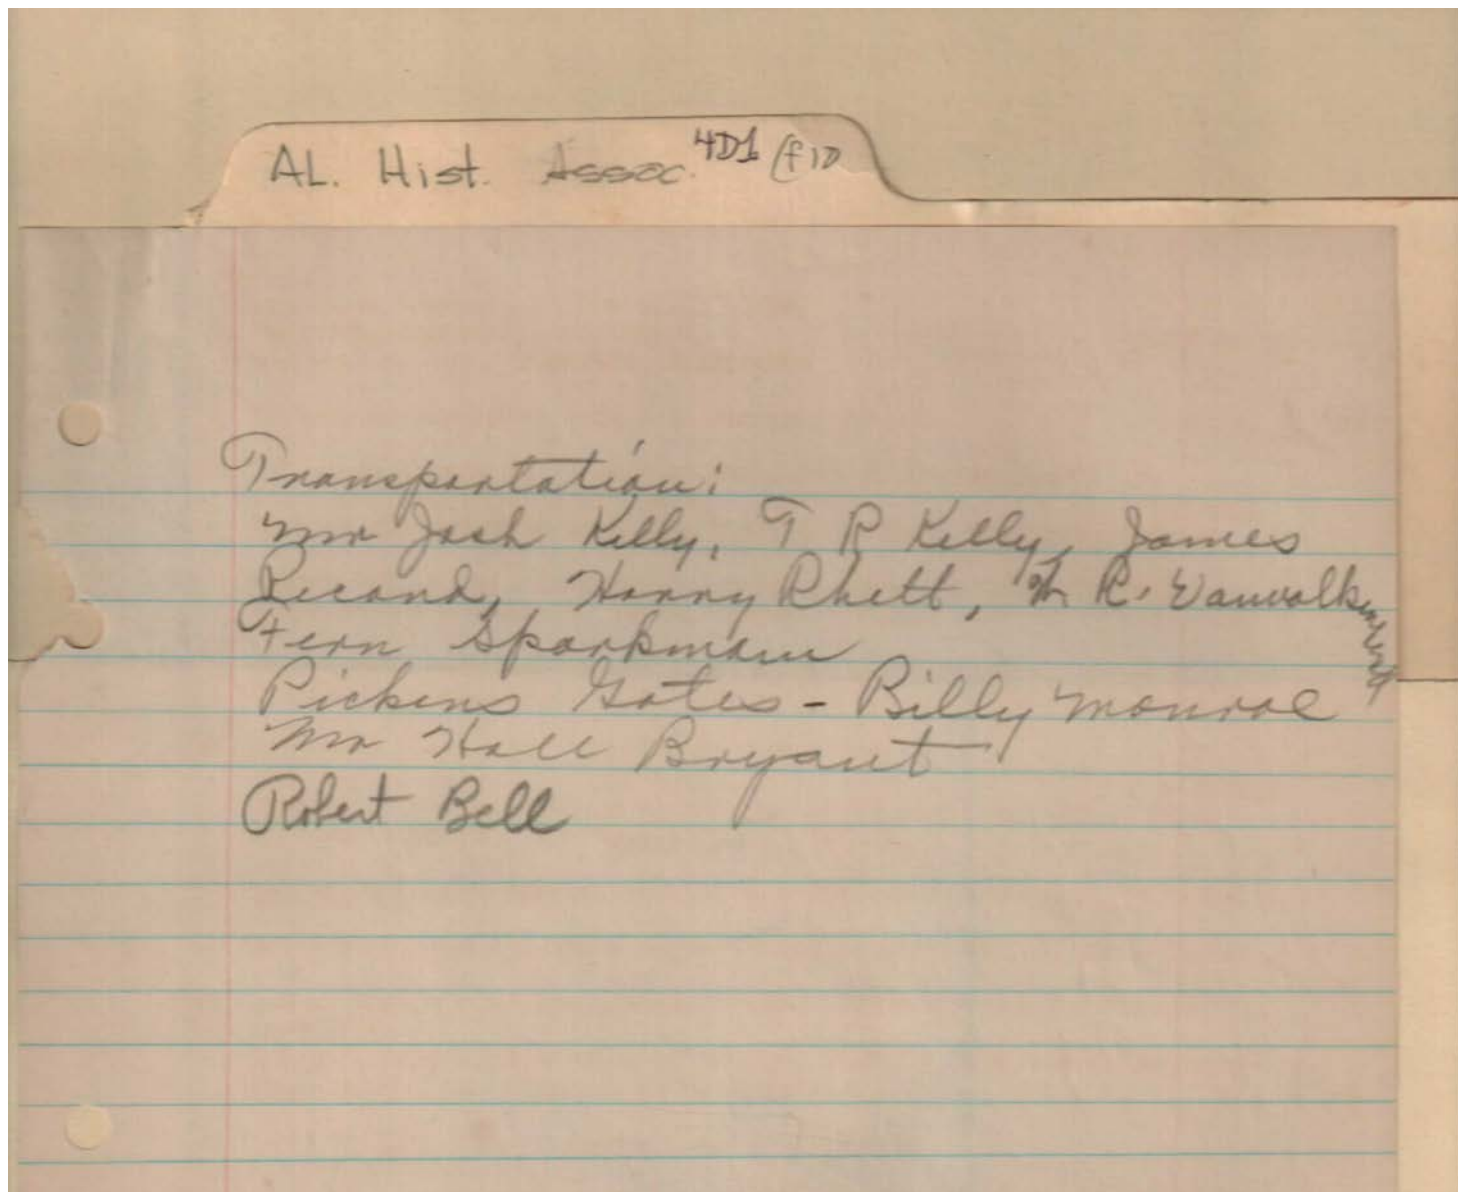 AL. Hist. Assoc. 4D1 (f10
Transportation:
Mr Josh Kelly, T R Kelly, James
Record, Harry Rhett, R. Vanvalkenburg
Fern Sparkman
Pickens Gates - Billy Monroe
Mr Hall Bryant
Robert Bell